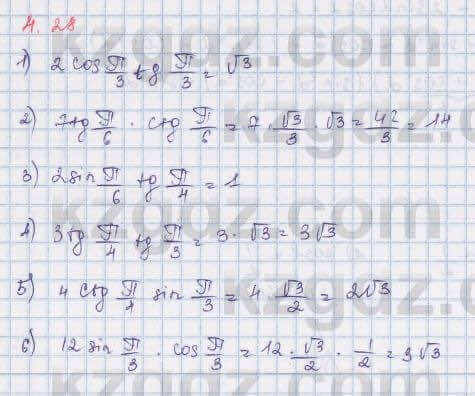 4.28
1) 2 cos π/3 tg π/3 = √3
2) 7tg π/6 · ctg π/6 = 7 · √3/3 · √3 = 42/3 = 14
3) 2sin π/6 tg π/4 = 1
4) 3tg π/4 tg π/3 = 3 · √3 = 3√3
5) 4 ctg π/4 sin π/3 = 4 · √3/2 = 2√3
6) 12 sin π/3 · cos π/3 = 12 · √3/2 · 1/2 = 3√3
kzgdz.com